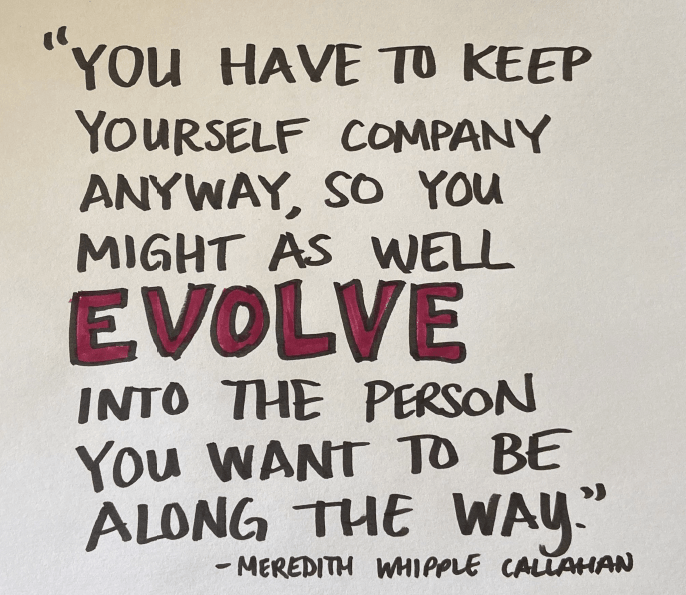 "YOU HAVE TO KEEP
YOURSELF COMPANY
ANYWAY, SO YOU
MIGHT AS WELL
EVOLVE
INTO THE PERSON
YOU WANT TO BE
ALONG THE WAY."
-MEREDITH WHIPPLE CALLAHAN